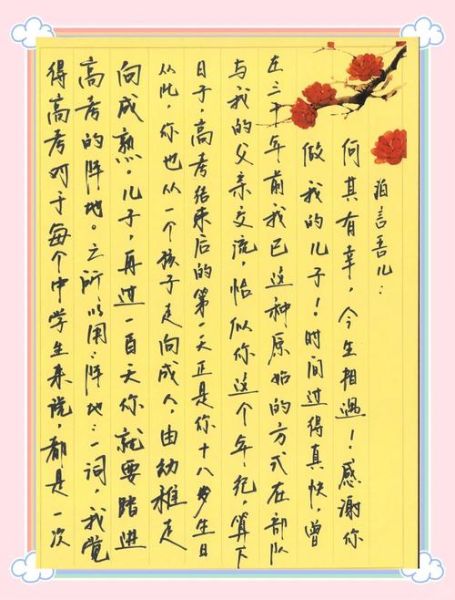 言吾儿：
何其有幸，今生相遇！感谢你
做我的儿子！时间过得真快，曾
在三十年前我已这种原始的方式在部队
与我的父亲交流，恰似你这个年纪，算下
日子，高考结束后的第一天正是你十八岁生日
从此，你也从一个孩子走向成人，由幼稚走
向成熟，儿子，再过一百天你就要踏进
高考的阵地。之所以用“阵地”一词，我觉
得高考对于每个中学生来说，都是一次